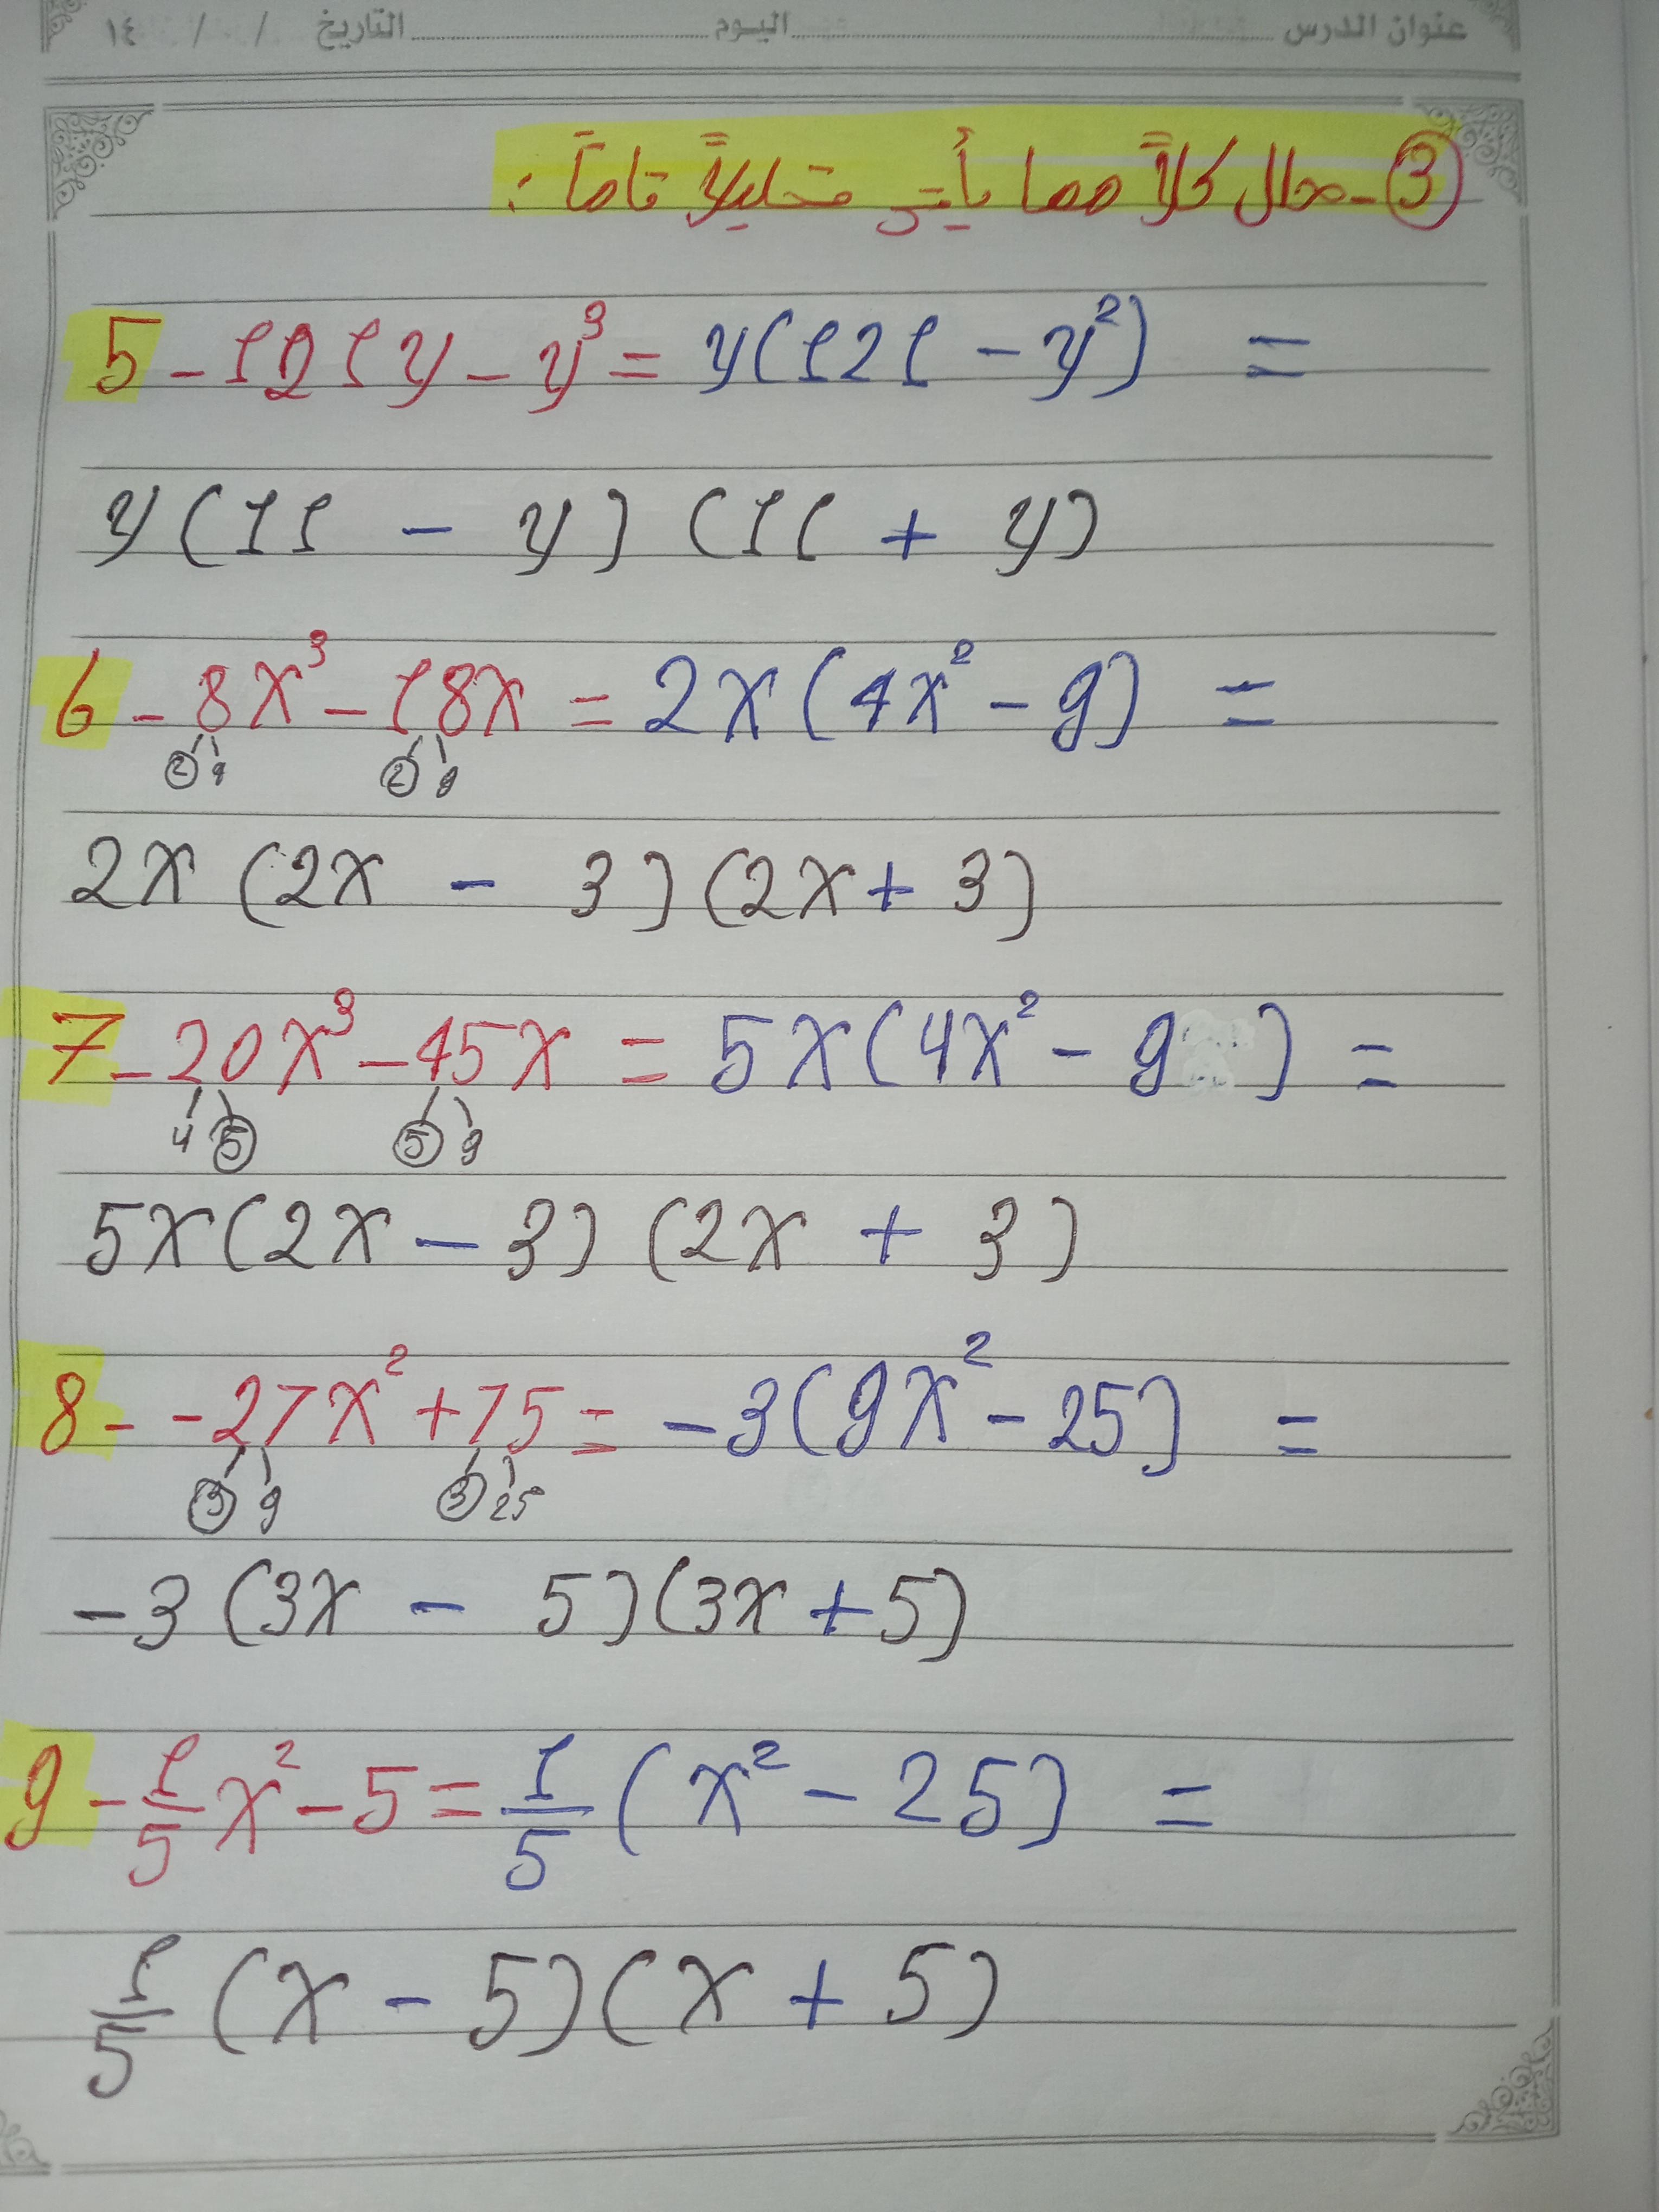 عنوان الدرس اليوم التاريخ / / ١٤
3 - حلل كلاً مما يأتي تحليلاً تاماً :
5 - 121y - y³ = y(121 - y²) =
y(11 - y)(11 + y)
6 - 8x³ - 18x = 2x(4x² - 9) =
2 4 2 9
2x(2x - 3)(2x + 3)
7 - 20x³ - 45x = 5x(4x² - 9) =
4 5 5 9
5x(2x - 3)(2x + 3)
8 - -27x² + 75 = -3(9x² - 25) =
3 9 3 25
-3(3x - 5)(3x + 5)
9 - 1/5 x² - 5 = 1/5 (x² - 25) =
1/5 (x - 5)(x + 5)